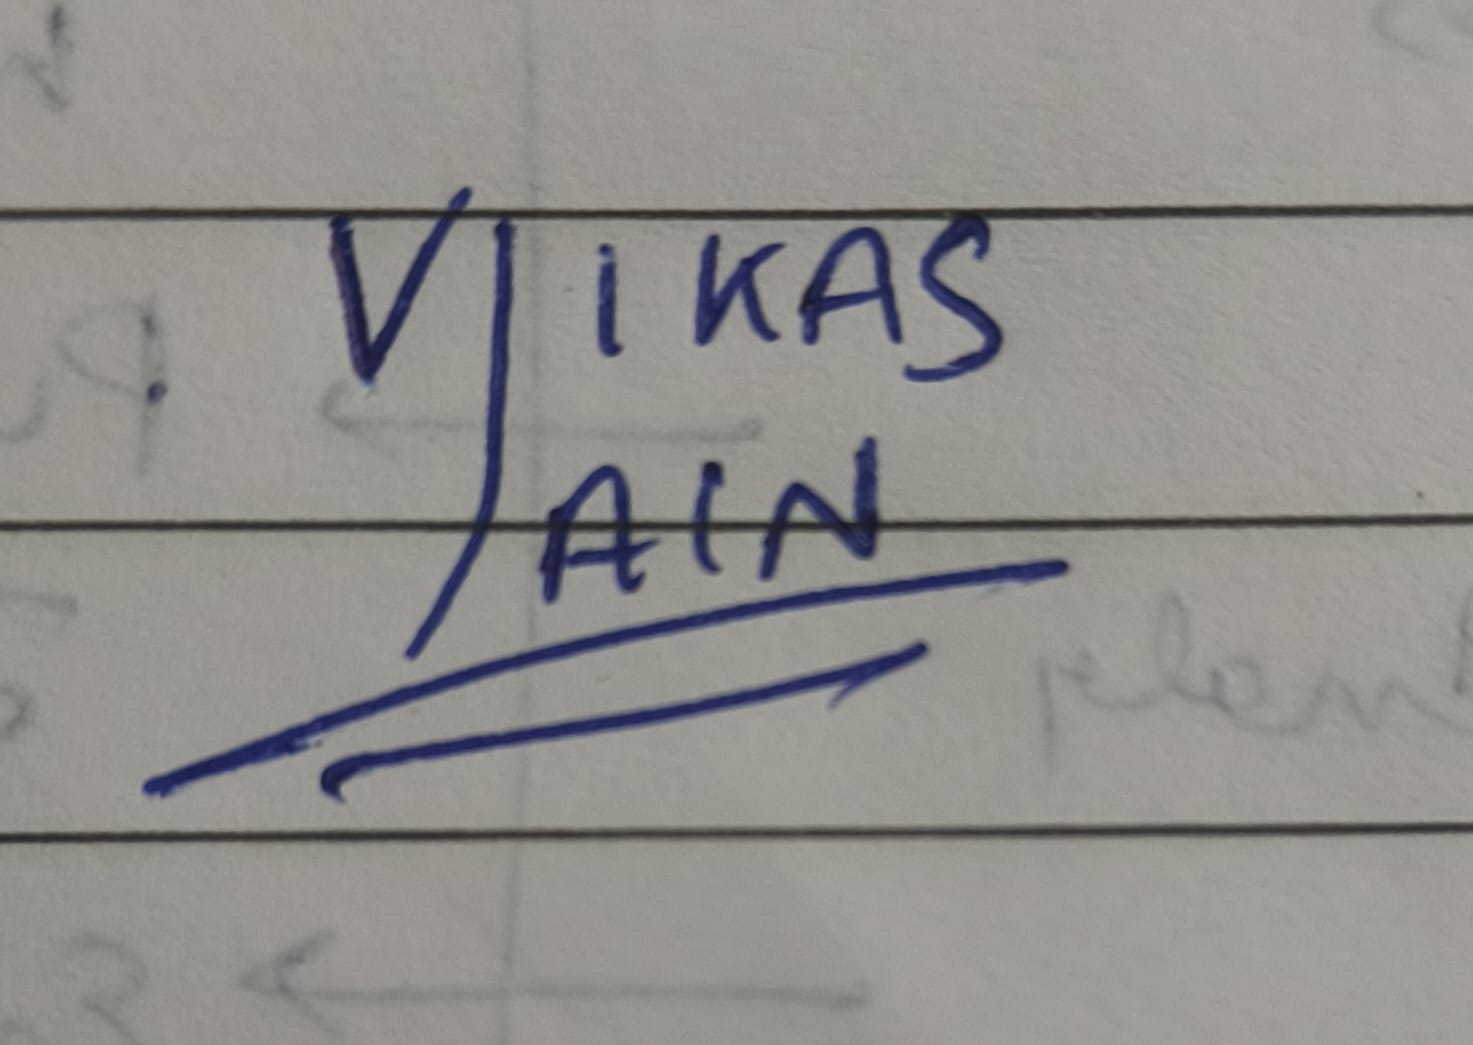 VIKAS
JAIN